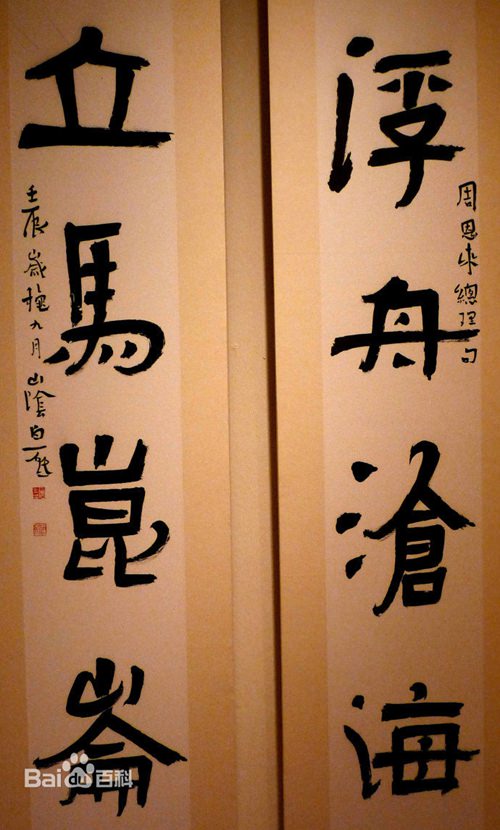 浮舟滄海
周恩来總理句
立馬崑崙
壬辰歲
九月山陰白
Bai du 百科